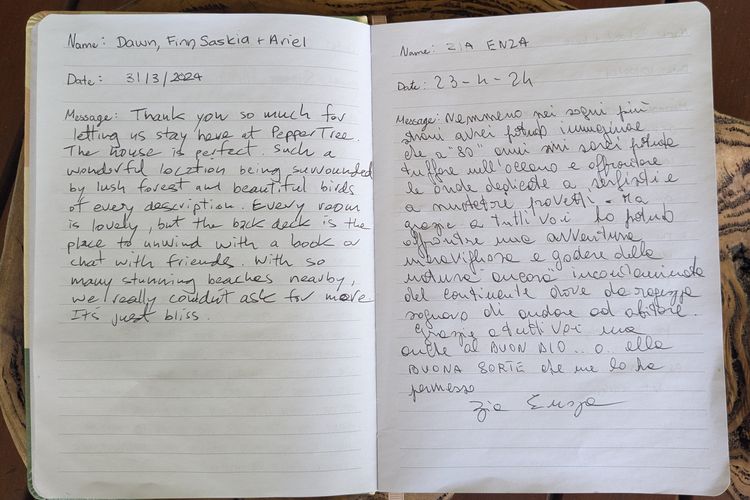 Name: Dawn, Finn, Saskia + Ariel
Date: 31/3/2024
Message: Thank you so much for
letting us stay here at PepperTree.
The house is perfect. Such a
wonderful location being surrounded
by lush forest and beautiful birds
of every description. Every room
is lovely, but the back deck is the
place to unwind with a book or
chat with friends. With so
many stunning beaches nearby,
we really couldn't ask for more
It's just bliss.
Name: ZIA ENZA
Date: 23-4-24
Message: Nemmeno nei sogni più
strani avrei potuto immaginare
che a "80" anni mi sarei potuta
tuffare nell'oceano e affrontare
le onde dedicate a surfisti e
a nuotatori provetti. Ma
grazie a tutti voi ho potuto
affrontare una avventura
meravigliosa e godere della
natura "ancora" incontaminata
del continente dove da ragazza
sognavo di andare ad abitare.
Grazie a tutti voi ma
anche al BUON DIO... o alla
BUONA SORTE che me lo ha
permesso
Zia Enza